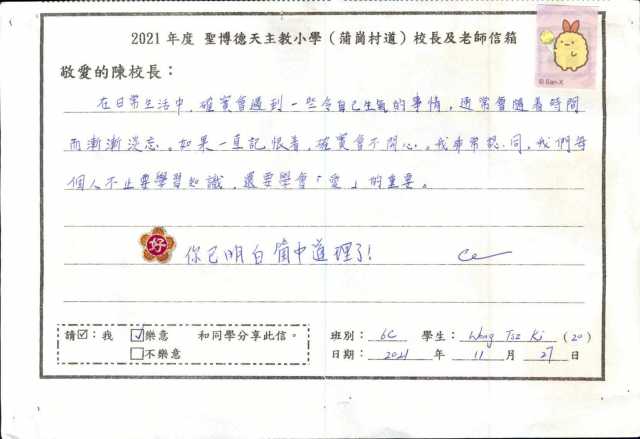 2021 年度 聖博德天主教小學（蒲崗村道）校長及老師信箱
© San-X
敬愛的陳校長：
在日常生活中，確實會遇到一些令自己生氣的事情，通常會隨着時間
而漸漸淡忘。如果一直記恨着，確實會不開心。我非常認同，我們每
個人不止要學習知識，還要學會「愛」的重要。
好 你已明白箇中道理了！
請☑：我 ☑樂意 和同學分享此信。
□不樂意
班別： 6C 學生： Wong Tsz Ki (20)
日期： 2021 年 11 月 27 日